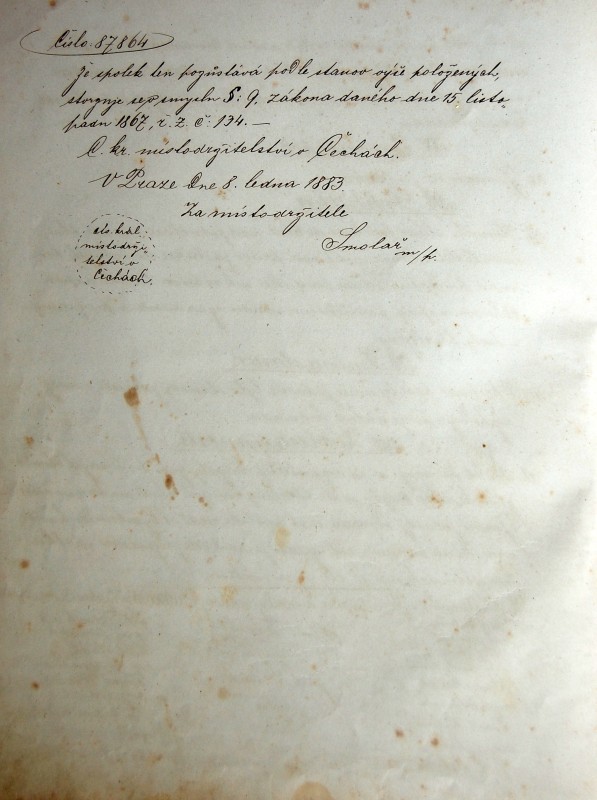 Číslo 87864
Že spolek ten pozůstává podle stanov výše položených,
stvrzuje se v smyslu §: 9. zákona daného dne 15 listo-
padu 1867, ř. z. č. 134. —
C. kr. místodržitelství v Čechách.
V Praze dne 8. ledna 1883.
Za místodržitele
Smolař m/p.
cís. král.
místodrži-
telství v
Čechách.